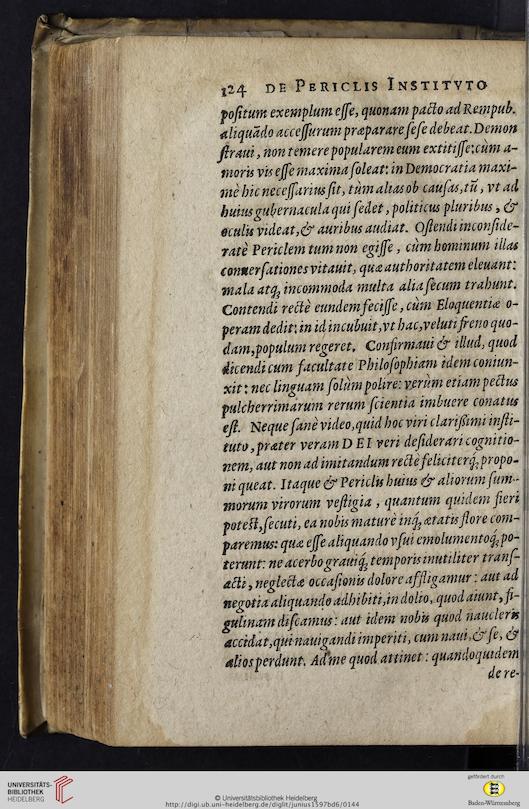 124 DE PERICLIS INSTITVTO
poſitum exemplum eſſe, quonam pacto ad Rempub.
aliquādo acceſſurum præparare ſeſe debeat. Demon
ſtraui, non temere popularem eum extitiſſe: cùm a-
moris vis eſſe maxima ſoleat: in Democratia maxi-
mè hic neceſſarius ſit, tùm alias ob cauſas, tū, vt ad
huius gubernacula qui ſedet, politicus pluribus, &
oculis videat, & auribus audiat. Oſtendi inconſide-
ratè Periclem tum non egiſſe, cùm hominum illas
conuerſationes vitauit, quæ authoritatem eleuant:
mala atq; incommoda multa alia ſecum trahunt.
Contendi rectè eundem feciſſe, cùm Eloquentiæ o-
peram dedit: in id incubuit, vt hac, veluti freno quo-
dam, populum regeret. Confirmaui & illud, quod
dicendi cum facultate Philoſophiam idem coniun-
xit: nec linguam ſolùm polire: verùm etiam pectus
pulcherrimarum rerum ſcientia imbuere conatus
eſt. Neque ſanè video, quid hoc viri clariſsimi inſti-
tuto, præter veram DEI veri deſiderari cognitio-
nem, aut non ad imitandum rectè feliciterq́; propo-
ni queat. Itaque & Periclis huius & aliorum ſum-
morum virorum veſtigia, quantum quidem fieri
poteſt, ſecuti, ea nobis maturè inq́; ætatis flore com-
paremus: quæ eſſe aliquando vſui emolumentoq́; po-
terunt: ne acerbo grauiq́; temporis inutiliter tranſ-
acti, neglectæ occaſionis dolore affligamur: aut ad
negotia aliquando adhibiti, in dolio, quod aiunt, fi-
gulinam diſcamus: aut idem nobis quod naucleris
accidat, qui nauigandi imperiti, cum naui, & ſe, &
alios perdunt. Ad me quod attinet: quandoquidem
de re-
UNIVERSITÄTS-
BIBLIOTHEK
HEIDELBERG
© Universitätsbibliothek Heidelberg
http://digi.ub.uni-heidelberg.de/diglit/junius1597bd6/0144
gefördert durch
Baden-Württemberg